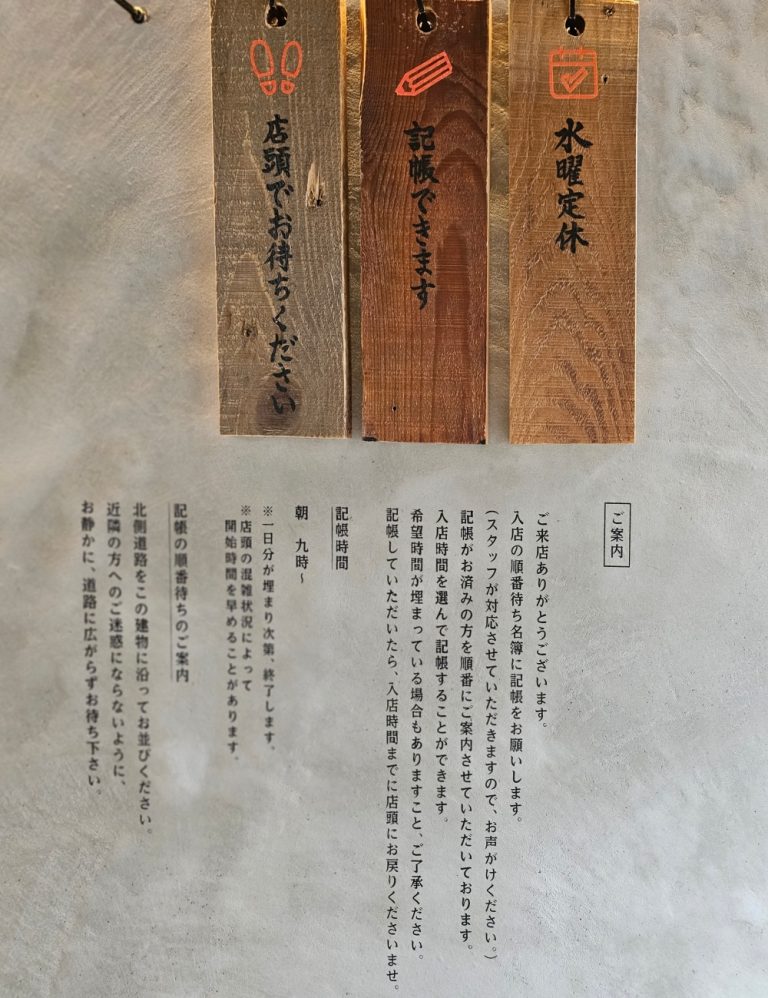 水曜定休
記帳できます
店頭でお待ちください
ご案内
ご来店ありがとうございます。
入店の順番待ち名簿に記帳をお願いします。
(スタッフが対応させていただきますので、お声がけください。)
記帳がお済みの方を順番にご案内させていただいております。
入店時間を選んで記帳することができます。
希望時間が埋まっている場合もありますこと、ご了承ください。
記帳していただいたら、入店時間までに店頭にお戻りくださいませ。
記帳時間
朝 九時~
※一日分が埋まり次第、終了します。
※店頭の混雑状況によって
開始時間を早めることがあります。
記帳の順番待ちのご案内
北側道路をこの建物に沿ってお並びください。
近隣の方へのご迷惑にならないように、
お静かに、道路に広がらずお待ち下さい。